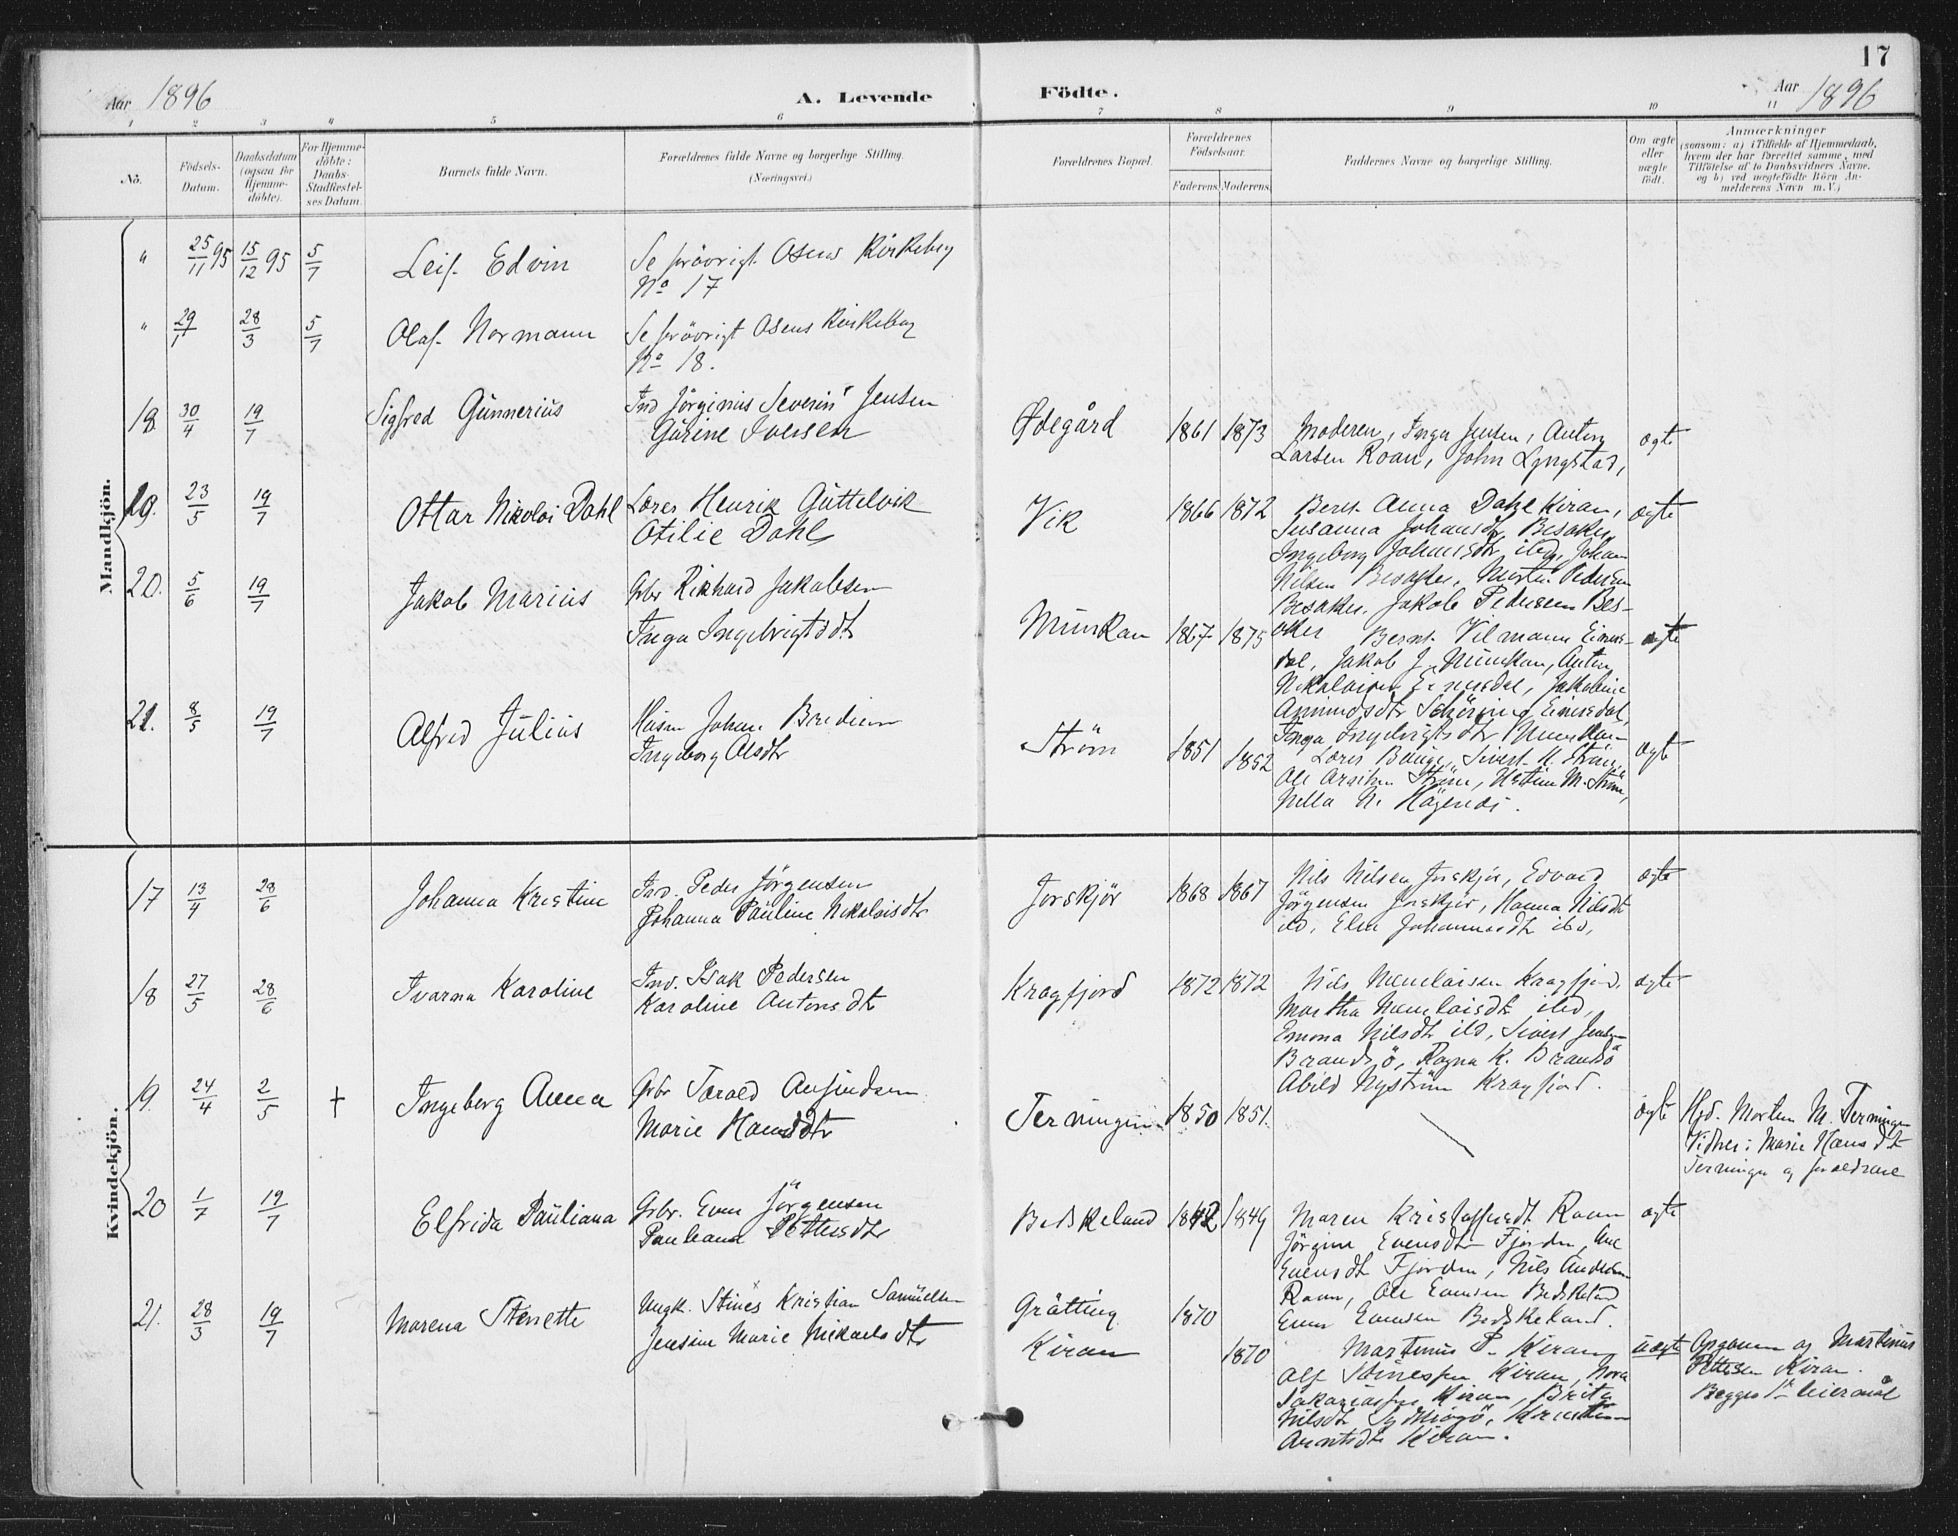 17
Aar 1896 A. Levende Födte. Aar 1896
1 2 3 4 5 6 7 8 9 10 11
No. Födsels-Datum. Daabsdatum (ogsaa for Hjemme-döbte). For Hjemme-döbte: Daabs-Stadfæstel-ses Datum. Barnets fulde Navn. Forældrenes fulde Navne og borgerlige Stilling. (Næringsvei.) Forældrenes Bopæl. Forældrenes Födselsaar. Faderens. Moderens. Faddernes Navne og borgerlige Stilling. Om ægte eller uægte födt. Anmærkninger (saasom: a) i Tilfælde af Hjemmedaab, hvem der har forrettet samme, med Tilföielse af to Daabsvidners Navne, og b) ved uægtefödte Börn An-melderens Navn m. V.)
Mandkjön.
" 25/11 95 15/12 95 5/7 Leif Edvin Se forövrigt Osens Kirkebog
No 17
" 29/1 28/3 5/7 Olaf Normann Se forövrigt Osens Kirkebog
No 18.
18 30/4 19/7 Sigfred Gunnerius Ind Jörginus Severin Jensen
Gurine Iversen Ødegård 1861 1873 ægte
Moderen, Inga Jensen, Anton
Larsen Roan, John Lyngstad,
19. 23/5 19/7 Ottar Nikolai Dahl Lærer Henrik Guttelvik
Otilie Dahl Vik 1866 1872 ægte
Bernt Anna Dahl Kiran,
Susanna Johansdt Besaker,
Ingeborg Johansdt ibd, Johan
Nilsen Besaker, Martin Pedersen
Besaker, Jakob Pedersen Bes-
aker
20. 5/6 19/7 Jakob Marius Gbr Rikhard Jakobsen
Inga Ingebrigtsdt Munkan 1867 1875 ægte
Bernt Vilmann Einars-
dal, Jakob J. Munkan, Anton
Nikolaisen Einarsdal, Jakobine
Amundsdt
Inga Ingebrigtsdt Munkan
21. 8/5 19/7 Alfred Julius Husm Johan Bredien
Ingeborg Olsdt Ström 1851 1852 ægte
Sivert M. Ström,
Ole Ström, M. Ström,
Nella N.
Kvindekjön.
17 13/4 28/6 Johanna Kristine Ind. Peder Jörgensen
Johanna Pauline Nikolaisdt Jorskjör 1868 1867 ægte
Nils Nilsen Jorskjör, Edvard
Jörgensen Jorskjör, Hanna Nilsdt
ibd, Elen Johannesdt ibd,
18 27/5 28/6 Ivarna Karoline Ind. Isak Pedersen
Karoline Antonsdt Kragfjord 1872 1872 ægte
Nils Kragfjord,
Martha ibd,
Emma Nilsdt ibd, Sivert
Brandsö, Ragna K. Brandsö
Abild Nyström Kragfjord.
19. 24/4 2/5 + Ingeborg Anna Gbr Tarald Anfindsen
Marie Hansdt Terningen 1850 1851. ægte
Hjd. Morten M. Terningen
Vidner: Marie Hansdt
Terningen og forældrene
20 1/7 19/7 Elfrida Pauliana Gbr. Even Jörgensen
Pauliana Pettersdt Bedskeland 1842 1849 ægte
Maren Kristoffersdt Roan
Jörgine Evensdt Fjorden, Ane
Evensdt Fjorden, Nils Andersen
Roan, Ole Evensen Bedskeland
Even Evensen Bedskeland.
21. 28/3 19/7 Marena Stenette Ungk. Stines Kristian Samuelsen
Jensine Marie Mikaelsdt Gråtting
Kiran 1870 1870 uægte
Martinus P. Kiran,
Kiran, Nora
Kiran, Brita
Nilsdt
Arntsdt Kiran.
Opgaven og Martinus
Pettersen Kiran.
Begges 1ste leiermål